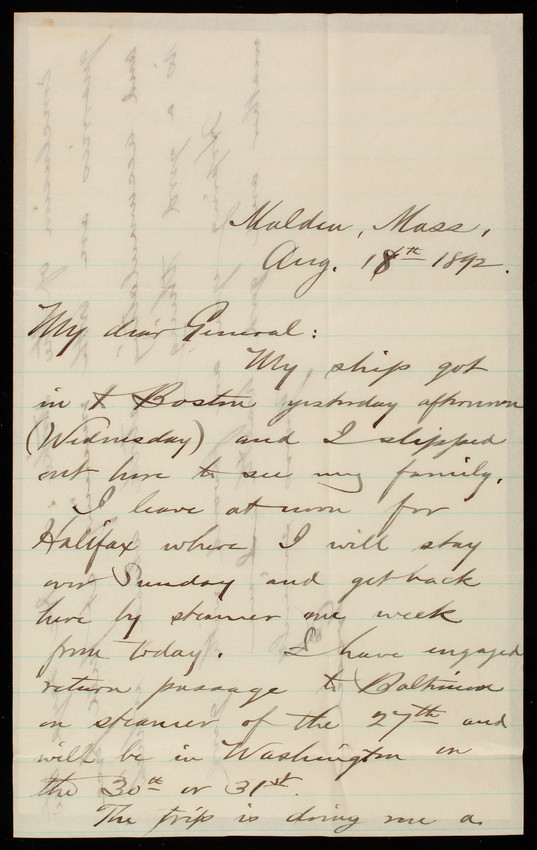 Malden, Mass,
Aug. 18th 1892.
My dear General:
My ship got
in to Boston yesterday afternoon
(Wednesday) and I slipped
out here to see my family.
I leave at noon for
Halifax where I will stay
over Sunday and get back
here by steamer one week
from today. I have engaged
return passage to Baltimore
on steamer of the 27th and
will be in Washington on
the 30th or 31st.
The trip is doing me a